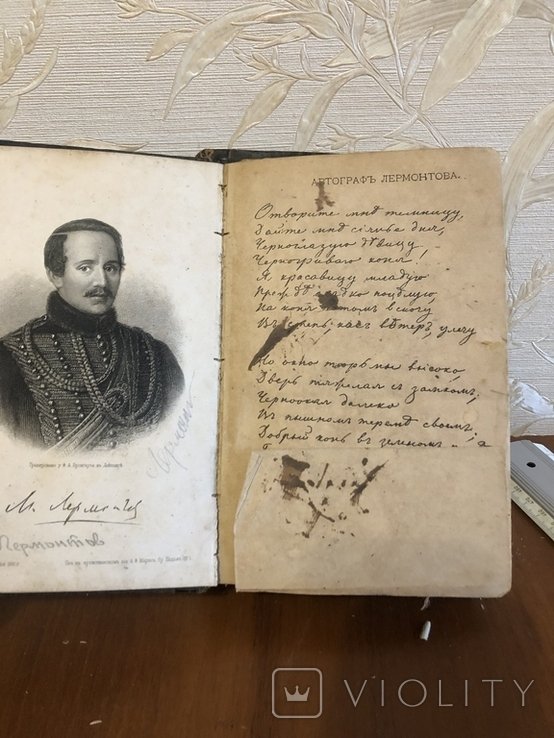 Гравировано у Ф. А. Брокгауза въ Лейпцигѣ
М. Лермонтов
Лермонтов
АВТОГРАФЪ ЛЕРМОНТОВА.
Отворите мнѣ темницу,
Дайте мнѣ сіянье дня,
Черноглазую дѣвицу
Черногриваго коня!
Я красавицу младую
Прежде сладко поцѣлую,
На коня потомъ вскочу
Въ степь, какъ вѣтеръ, улечу
Но окно тюрьмы высоко,
Дверь тяжелая съ замкомъ;
Черноокая далеко
Въ пышномъ теремѣ своемъ;
Добрый конь въ зеленомъ
VIOLITY